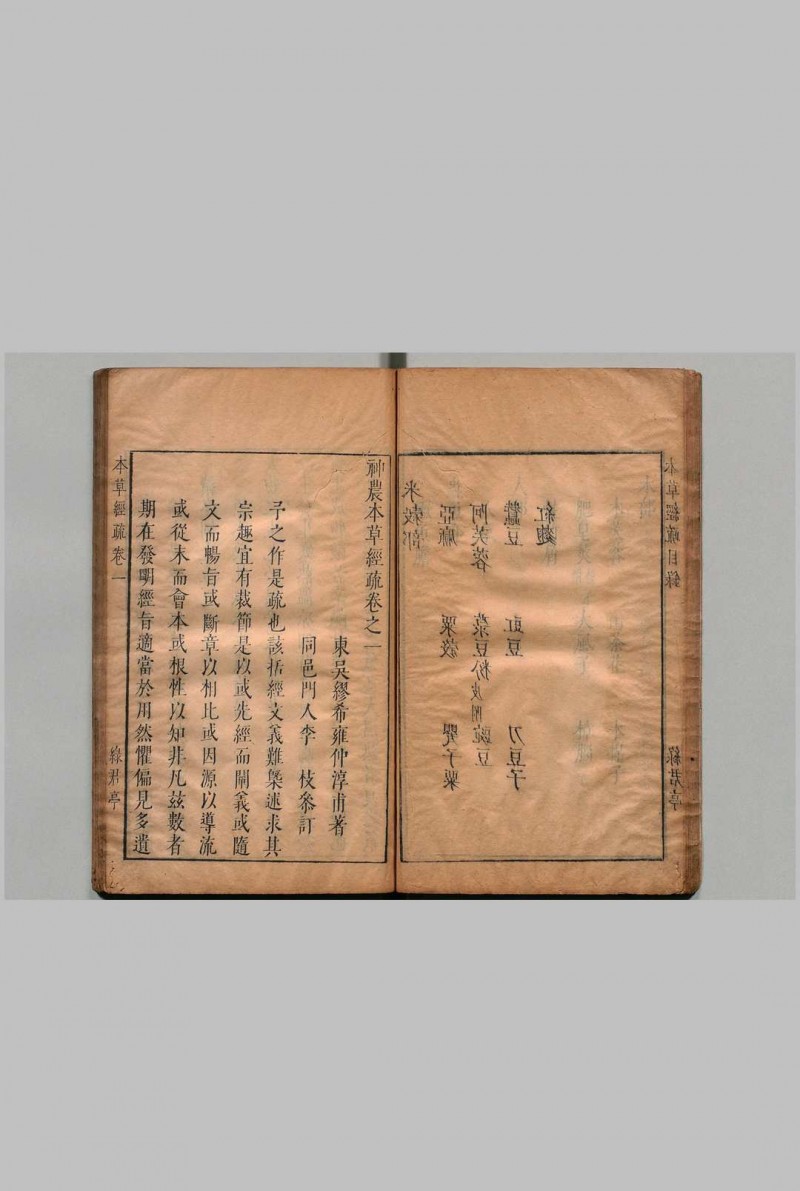 本草經疏目錄
綠君亭
米穀部
亞麻 粟穀 罌子粟
阿芙蓉 菉豆粉皮附 豌豆
蠶豆 豇豆 刀豆子
紅麴
神農本草經疏卷之一
東吳繆希雍仲淳甫著
同邑門人李 枝參訂
予之作是疏也該括經文義難槩述求其
宗趣宜有裁節是以或先經而闡義或隨
文而暢旨或斷章以相比或因源以導流
或從末而會本或根性以知非凡茲數者
期在發明經旨適當於用然懼偏見多遺
本草經疏卷一
綠君亭